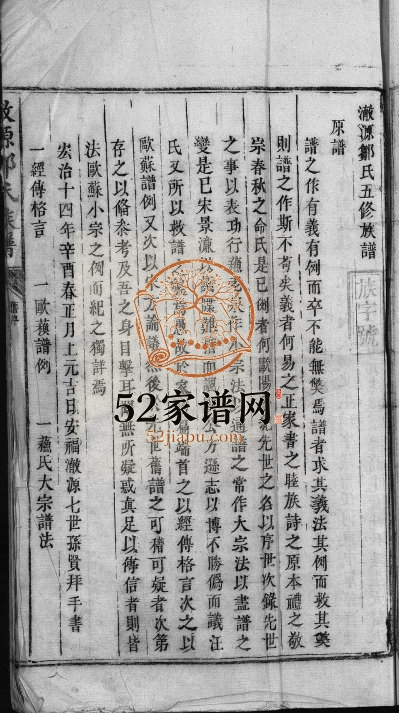 澈源鄒氏五修族譜
原譜
譜之作有義有例而卒不能無獘焉譜者求其義法其例而救其獘
則譜之作斯不苟矣義者何易之正家書之睦族詩之原本禮之敬
宗春秋之命氏是已例者何歐陽 先世之名以序世次錄先世
之事以表功行 作 宗法 通譜之常作大宗法以盡譜之
變是已宋景濂 諜 公方遜志以博不勝僞而譏江
氏又所以救譜 故於 編端首之以經傳格言次之以
歐蘇譜例又次以 論議然後 世舊譜之可稽可疑者次第
存之以俻叅考及吾之身目擊耳 無所疑惑真足以俻信者則皆
法歐蘇小宗之例而紀之獨詳焉
宏治十四年辛酉春正月上元吉日安福澈源七世孫賢拜手書
一經傳格言 一歐蘓譜例 一蘓氏大宗譜法
澈源鄒氏族譜
族字號
52家谱网
52jiapu.com